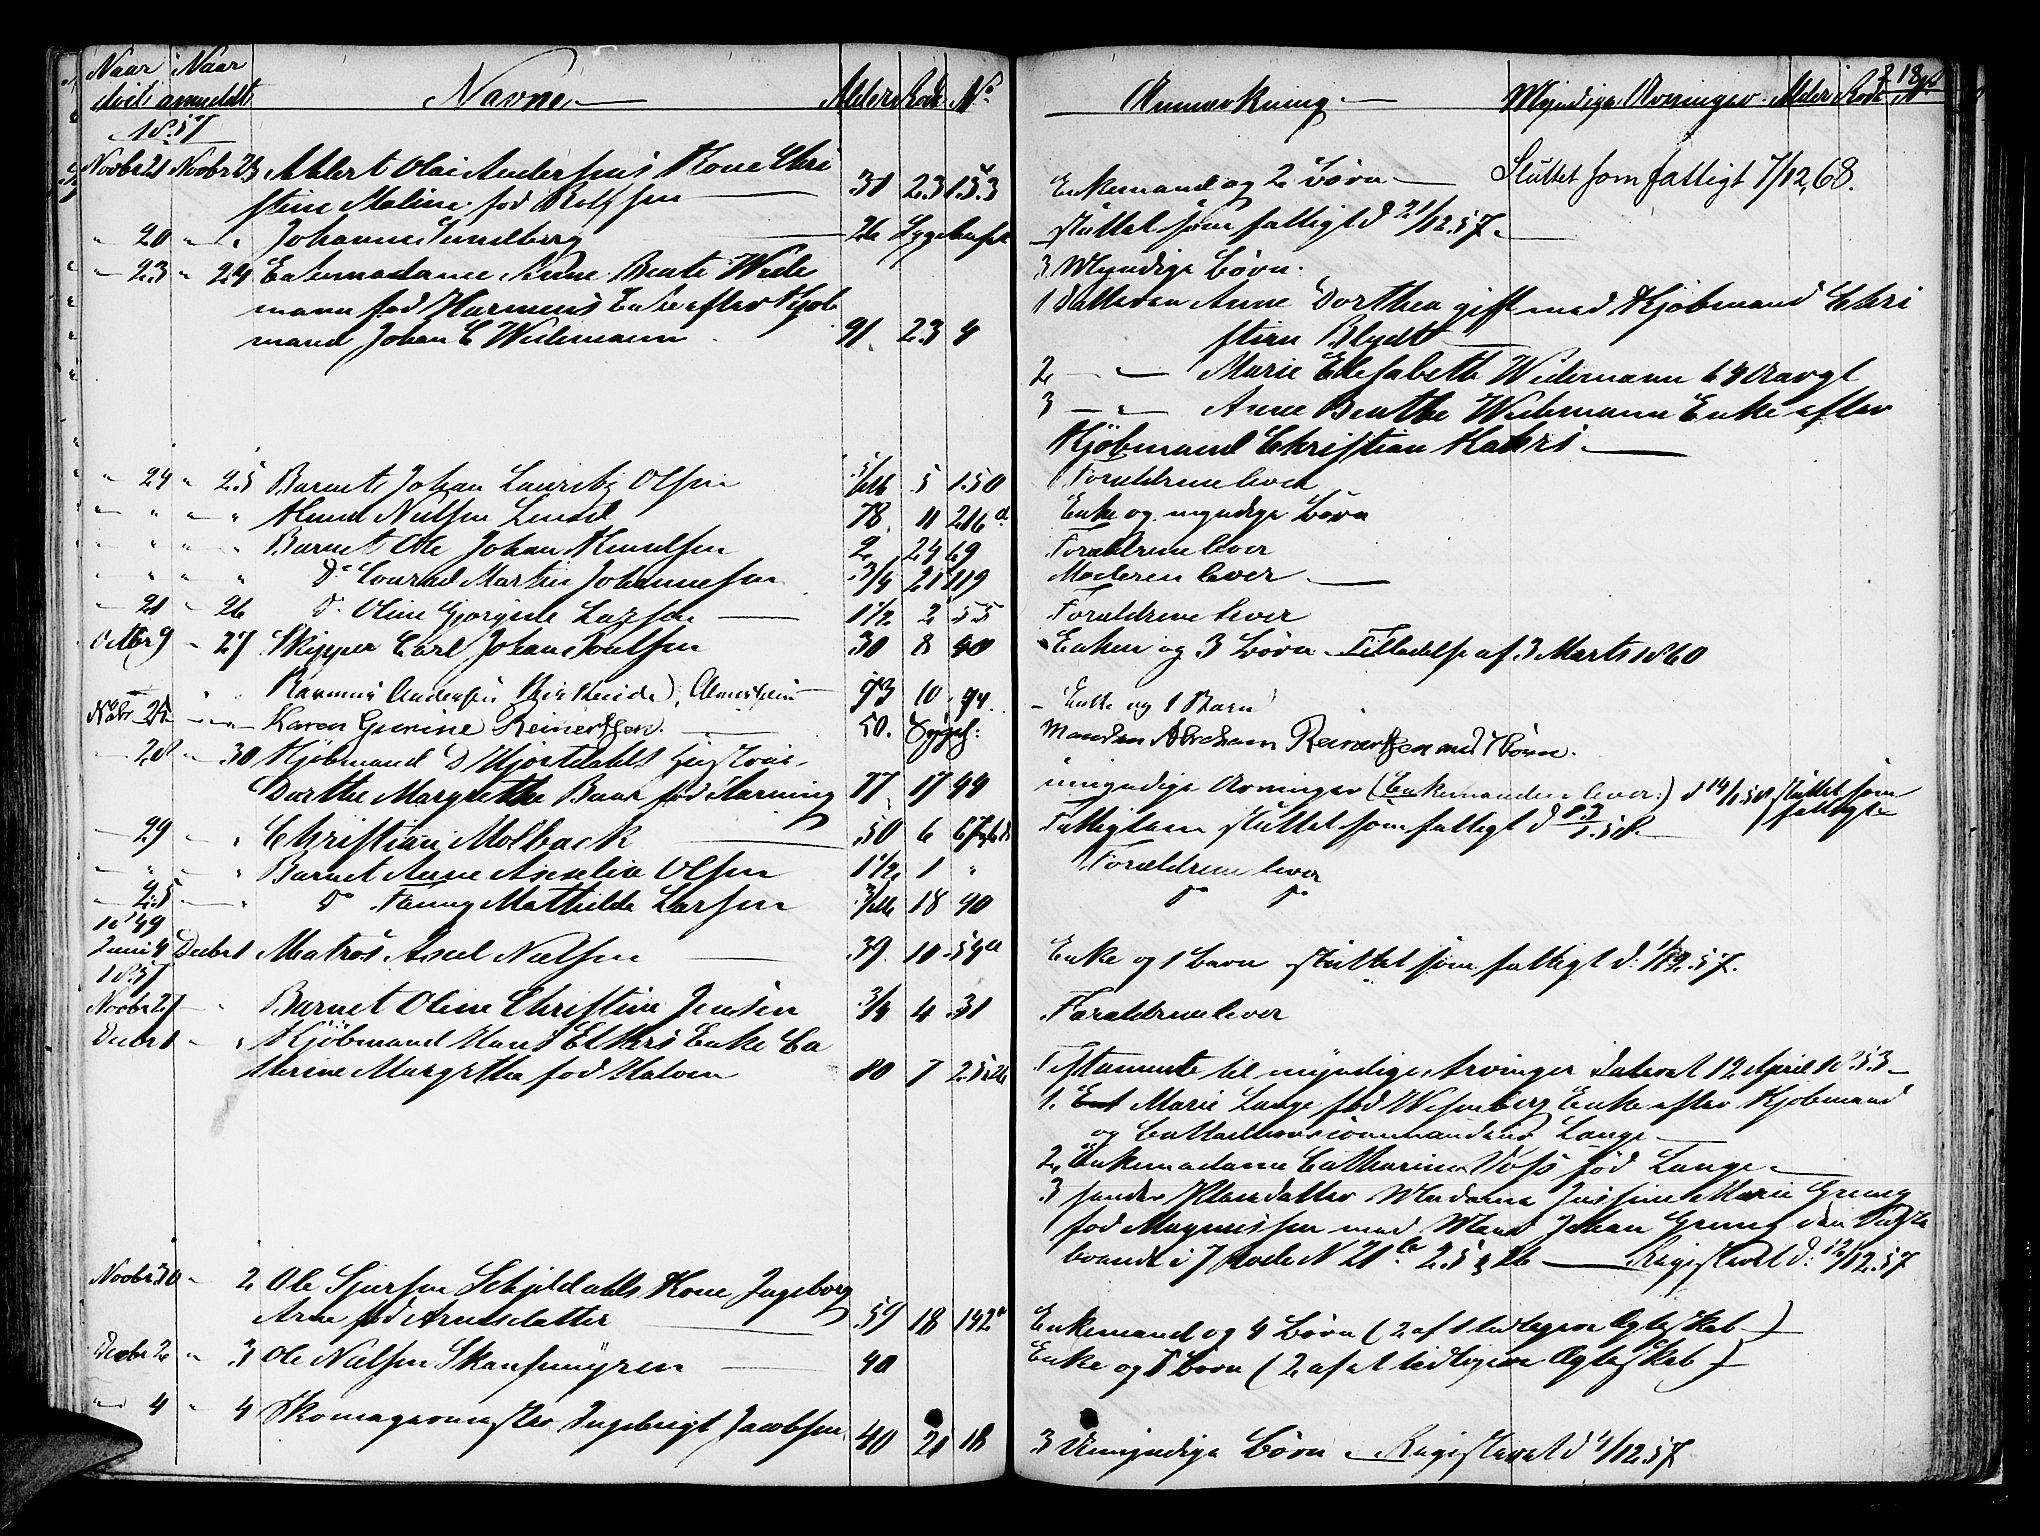 Naar Naar
død anmeldt Navne Alder Rode No
1857
Novbr 21 Novbr 23 Ahlert Olai Andersens Kone Chri
stine Maline fød Rolfsen 31 23 153
" 20 " " Johanne Sundberg 26 Sygehuset
" 23 " 24 Enkemadame Anne Beate Wide
mann fød Harmens Enke efter Kjøb
mand Johan C Widemann 91 23 4
" 24 " 25 Barnet Johan Lauritz Olsen 5 150
" " " " Nielsen 78 11 216 a
" " " " Barnet Ole Johan Knudsen 2 24 69
" " " " Do Conrad Martin Johannesen 3/4 21 119
" 21 " 26 Do Oline Gjørgine Larsen 1 1/2 2 55
Octbr 9 " 27 Skipper Carl Johan Poulsen 30 8 40
" " Rasmus Andersen 73 10 94
Nobr 25 " " Karen Gurine Reinertsen. 50. Sygeh:
" 28 " 30 Kjøbmand D Hjortdahls Hustrue
Dorthe Margrethe Baar fød Harming 77 17 44
" 29 " " Christian Molback 50 6
" " " Barnet Anne Amalia Olsen 1 1/2 1 "
" 25 " " Do Fanny Mathilde Larsen 18 40
1849
Juni 4 Decbr 1 Matros Axel Nielsen 39 10 54 a
1857
Novbr 27 " " Barnet Oline Christine Jensen 3/4 4 31
Decbr 1 " " Kjøbmand Hans Ellers Enke Ca
thrine Margretha fød Halven 80 7 25 & 26
Novbr 30 " 2 Ole Sjursen Schjeldahls Kone Ingeborg
Arne fød Arnesdatter 59 18 142 a
Decbr 2 " 3 Ole Nielsen Skansemyren 40
" 4 " 4 Skomagermester Ingebrigt Jacobsen 40 21 18
218
Anmærkning Myndige Arvinger Alder Rode No
Enkemand og 2 Børn Sluttet som fattigt 7/12,68.
sluttet som fattigt d 21/12.57.
3 Myndige Børn.
1 Datteren Anne Dorthea gift med Kjøbmand Chri
stian Blydt
2 " Marie Elisabeth Widemann 64 Aargl
3 " Anne Benthe Widemann Enke efter
Kjøbmand Christian Kahrs
Forældrene lever
Enke og myndige Børn
Forældrene lever
Moderen lever
Forældrene lever
Enken og 3 Børn Tilladelse af 3 Marts 1860
Enke og 1 Barn
Manden Abraham Reinertsen med Børn.
umyndige Arvinger (Enkemanden lever:) d 14/1.58 sluttet som
fattigte
Fattiglem sluttet som fattigt d 23/1.58
Forældrene lever
Do Do
Enke og 1 Barn sluttet som fattigt d. 1/12.57.
Forældrene lever
Testamente til myndige Arvinger Dateret 12 April 1853
1. Marie Lange fød Wesenberg Enke efter Kjøbmand
og Lange
2 Enkemadame Catharine Voss fød Lange
3 Madame Justine Marie Grung
fød Magnussen med Mand Johan Grung den Sidste
boende i 7 Rode N 21 b 25 & 26 Registeret d. 12/12.57
Enkemand og 4 Børn (2 af 1 tidligere Ægteskab)
Enke og 5 Børn (2 af et tidligere Ægteskab)
3 Umyndige Børn Registeret d 4/12.57